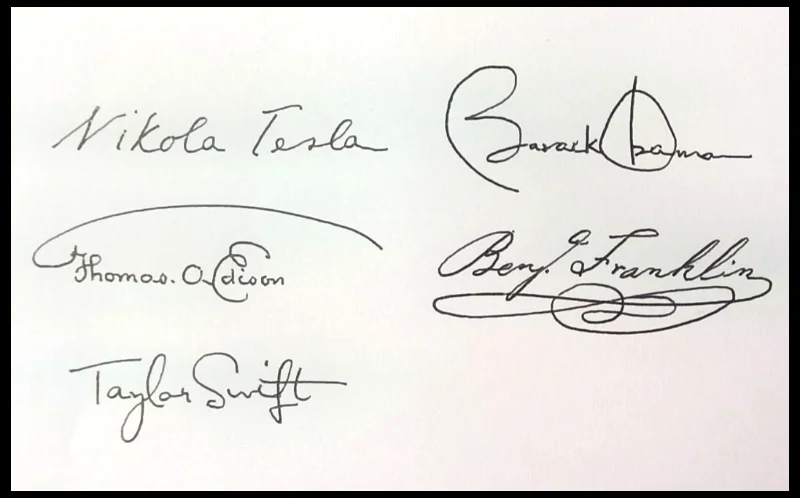 Nikola Tesla
Thomas. A. Edison
Taylor Swift
Barack Obama
Benj. Franklin